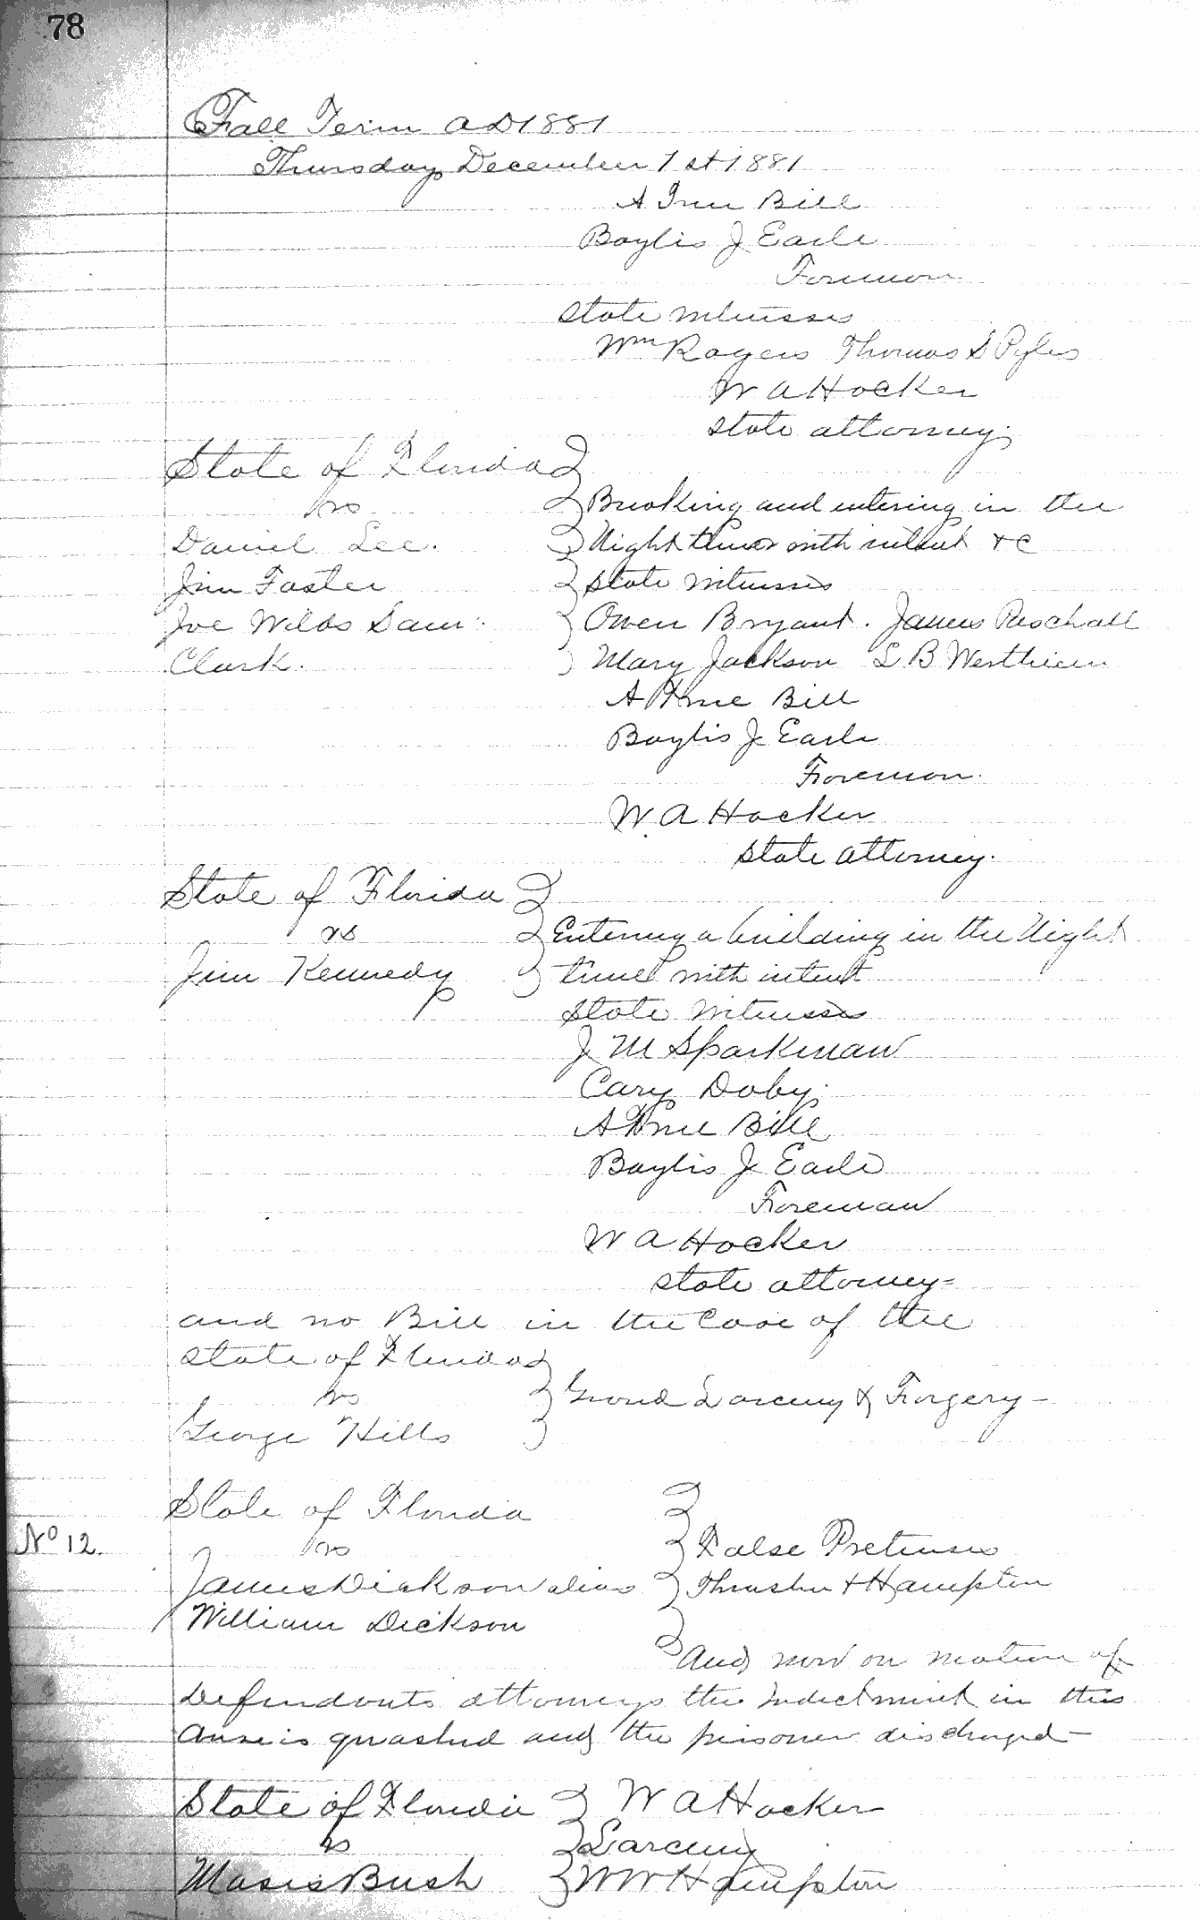 78
Fall Term AD 1881
Thursday December 1st 1881
A True Bill
Baylis J Earle
Foreman
State witnesses
Wm Rogers Thomas S Pyles
W A Hocker
State attorney
State of Florida
vs
Breaking and entering in the
Daniel Lee. Night time with intent &c
Jim Foster State witnesses
Joe Wilds Sam Owen Bryant. James Paschall
Clark. Mary Jackson L B Wertheim
A True Bill
Baylis J Earle
Foreman.
W. A Hocker
State Attorney.
State of Florida
vs Entering a building in the Night
Jim Kennedy time with intent
State witnesses
J M Sparkman
Cary Doby.
A True Bill
Baylis J Earle
Foreman
W A Hocker
State attorney
and no Bill in the Case of the
State of Florida
vs Grand Larceny & Forgery -
George Hills
State of Florida
No 12. vs False Pretenses
James Dickson alias Thrasher & Hampton
William Dickson
And now on motion of
Defendants attorneys the Indictment in this
Cause is quashed and the prisoner discharged -
State of Florida W A Hocker
vs Larceny
Moses Bush W W Hampton